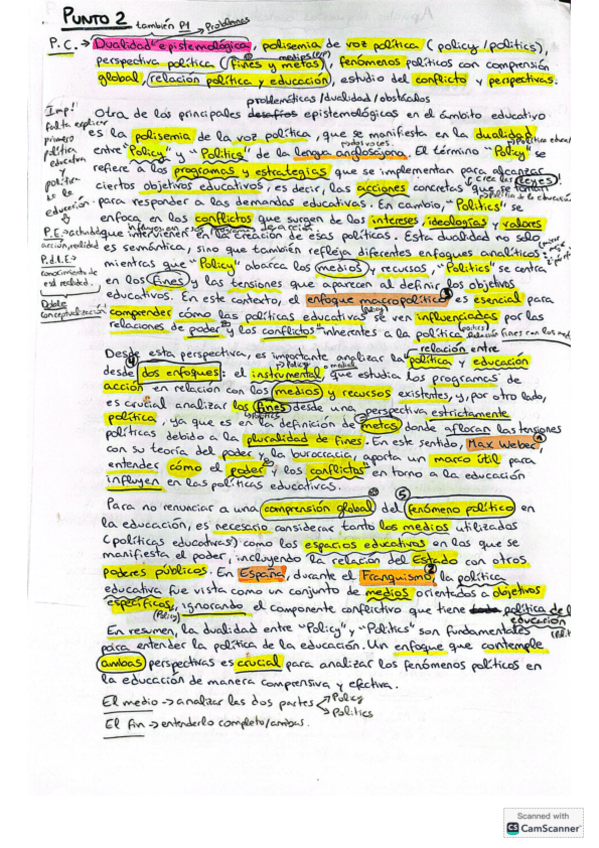 PUNTO 2 también P1 → Problemas
P.C. → "Dualidad" epistemológica, polisemia de voz política (policy/politics),
perspectiva política (fines y metas), fenómenos políticos con comprensión
global, relación política y educación, estudio del conflicto y perspectivas.
problemáticas/dualidad/obstáculos
Otra de los principales desafíos epistemológicos en el ámbito educativo
es la polisemia de la voz política, que se manifiesta en la dualidad
entre "Policy" y "Politics" de la lengua anglosajona. El término "Policy" se
refiere a los programas y estrategias que se implementan para alcanzar
ciertos objetivos educativos, es decir, las acciones concretas que se toman
para responder a las demandas educativas. En cambio, "Politics" se
enfoca en los conflictos que surgen de los intereses, ideologías y valores
que intervienen en la creación de esas políticas. Esta dualidad no solo
es semántica, sino que también refleja diferentes enfoques analíticos:
mientras que "Policy" abarca los medios y recursos, "Politics" se centra
en los fines y las tensiones que aparecen al definir los objetivos
educativos. En este contexto, el enfoque macropolítico es esencial para
comprender cómo las políticas educativas se ven influenciadas por las
relaciones de poder y los conflictos inherentes a la política
Imp!
falta explicar
primero
política
educativa
y
política
de la
educación.
P.E. → actividad
acción, realidad
P.d.l.E →
conocimiento de
esa realidad.
Doble
conceptualización
Desde esta perspectiva, es importante analizar la relación entre política y educación
desde dos enfoques: el instrumental, que estudia los programas de
acción en relación con los medios y recursos existentes, y, por otro lado,
es crucial analizar los fines desde una perspectiva estrictamente
política, ya que es en la definición de metas donde afloran las tensiones
políticas debido a la pluralidad de fines. En este sentido, Max Weber,
con su teoría del poder y la burocracia, aporta un marco útil para
entender cómo el poder y los conflictos en torno a la educación
influyen en las políticas educativas.
Para no renunciar a una comprensión global del fenómeno político en
la educación, es necesario considerar tanto los medios utilizados
(políticas educativas) como los espacios educativos en los que se
manifiesta el poder, incluyendo la relación del Estado con otros
poderes públicos. En España, durante el Franquismo, la política
educativa fue vista como un conjunto de medios orientados a objetivos
específicos, ignorando el componente conflictivo que tiene política de la
(Policy) educación
En resumen, la dualidad entre "Policy" y "Politics" son fundamentales
para entender la política de la educación. Un enfoque que contemple
ambas perspectivas es crucial para analizar los fenómenos políticos en
la educación de manera comprensiva y efectiva.
El medio → analizar las dos partes Policy
Politics
El fin → entenderlo completo/ambas.
Scanned with
CS CamScanner